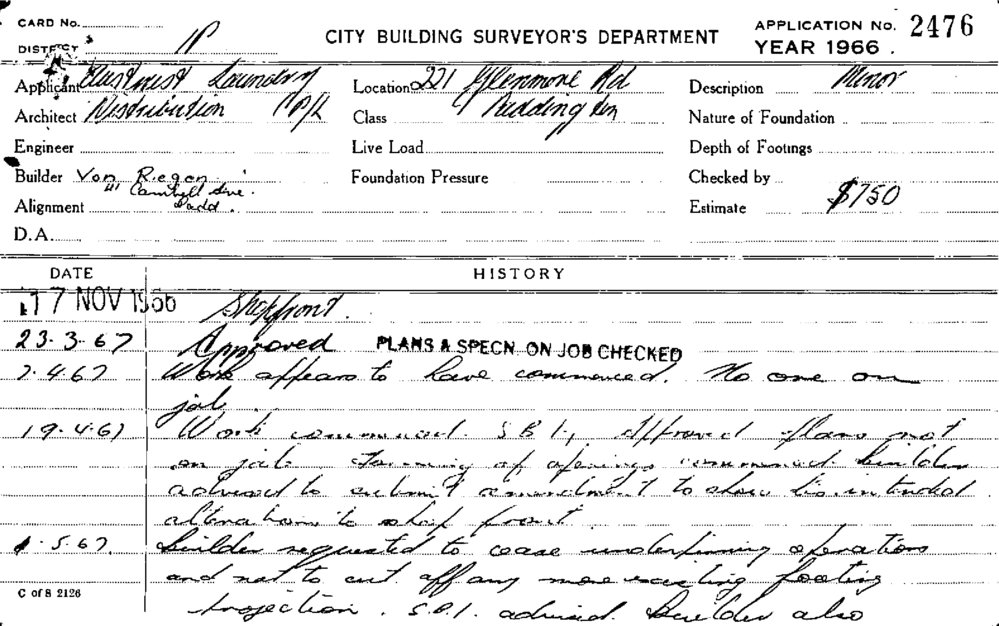 CARD No.
DISTRICT IP
CITY BUILDING SURVEYOR'S DEPARTMENT
APPLICATION No. 2476
YEAR 1966.
Applicant Laundry
Location 221 Glenmore Rd
Description Minor
Architect Distribution P/L
Class Paddington
Nature of Foundation
Engineer
Live Load
Depth of Footings
Builder Von
Foundation Pressure
Checked by
Campbell Ave.
Alignment Padd.
Estimate $750
D.A.
DATE HISTORY
17 NOV 1966 Shopfront.
23.3.67 Approved PLANS & SPECN. ON JOB CHECKED
7.4.67 Work appears to have commenced. No one on
job.
19.4.67 Work commenced. S.B.I., Approved plans not
on job. Forming of openings commenced. Builder
advised to submit amendment to show his intended
alterations to shop front.
5.67. Builder requested to cease underpinning operations
and not to cut off any more existing footing
projection. S.B.I. advised. Builder also
C of S 2126